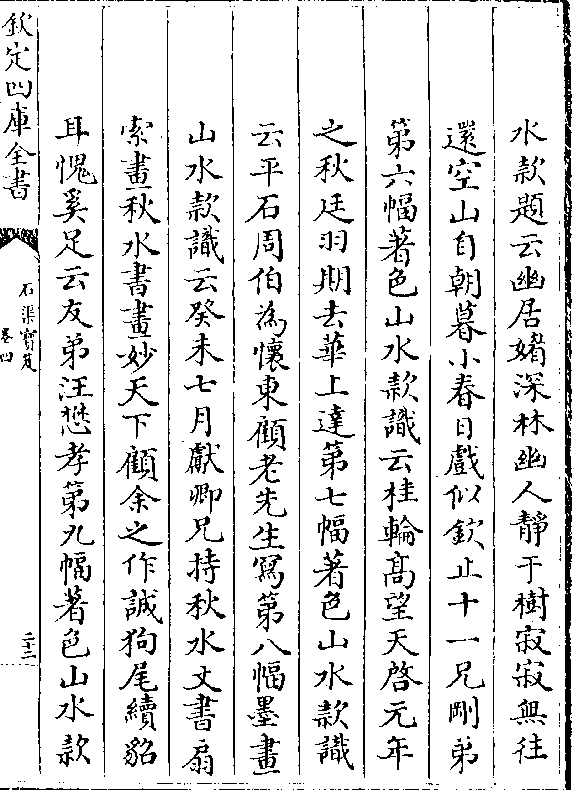 水款題云幽居媎深林幽人静于樹寂寂無往
還空山自朝暮小春日戲似欽止十一兄剛弟
第六幅著色山水款識云桂輪髙望天啓元年
之秋廷羽期去華上達第七幅著色山水款識
云平石周伯為懷東顧老先生寫第八幅墨畫
山水款識云癸未七月獻卿兄持秋水丈書扇
索畫秋水書畫妙天下顧余之作誠狗尾續貂
耳愧奚足云友弟汪懋孝第九幅著色山水款
欽定四庫全書
石渠寶笈
卷四
二十二